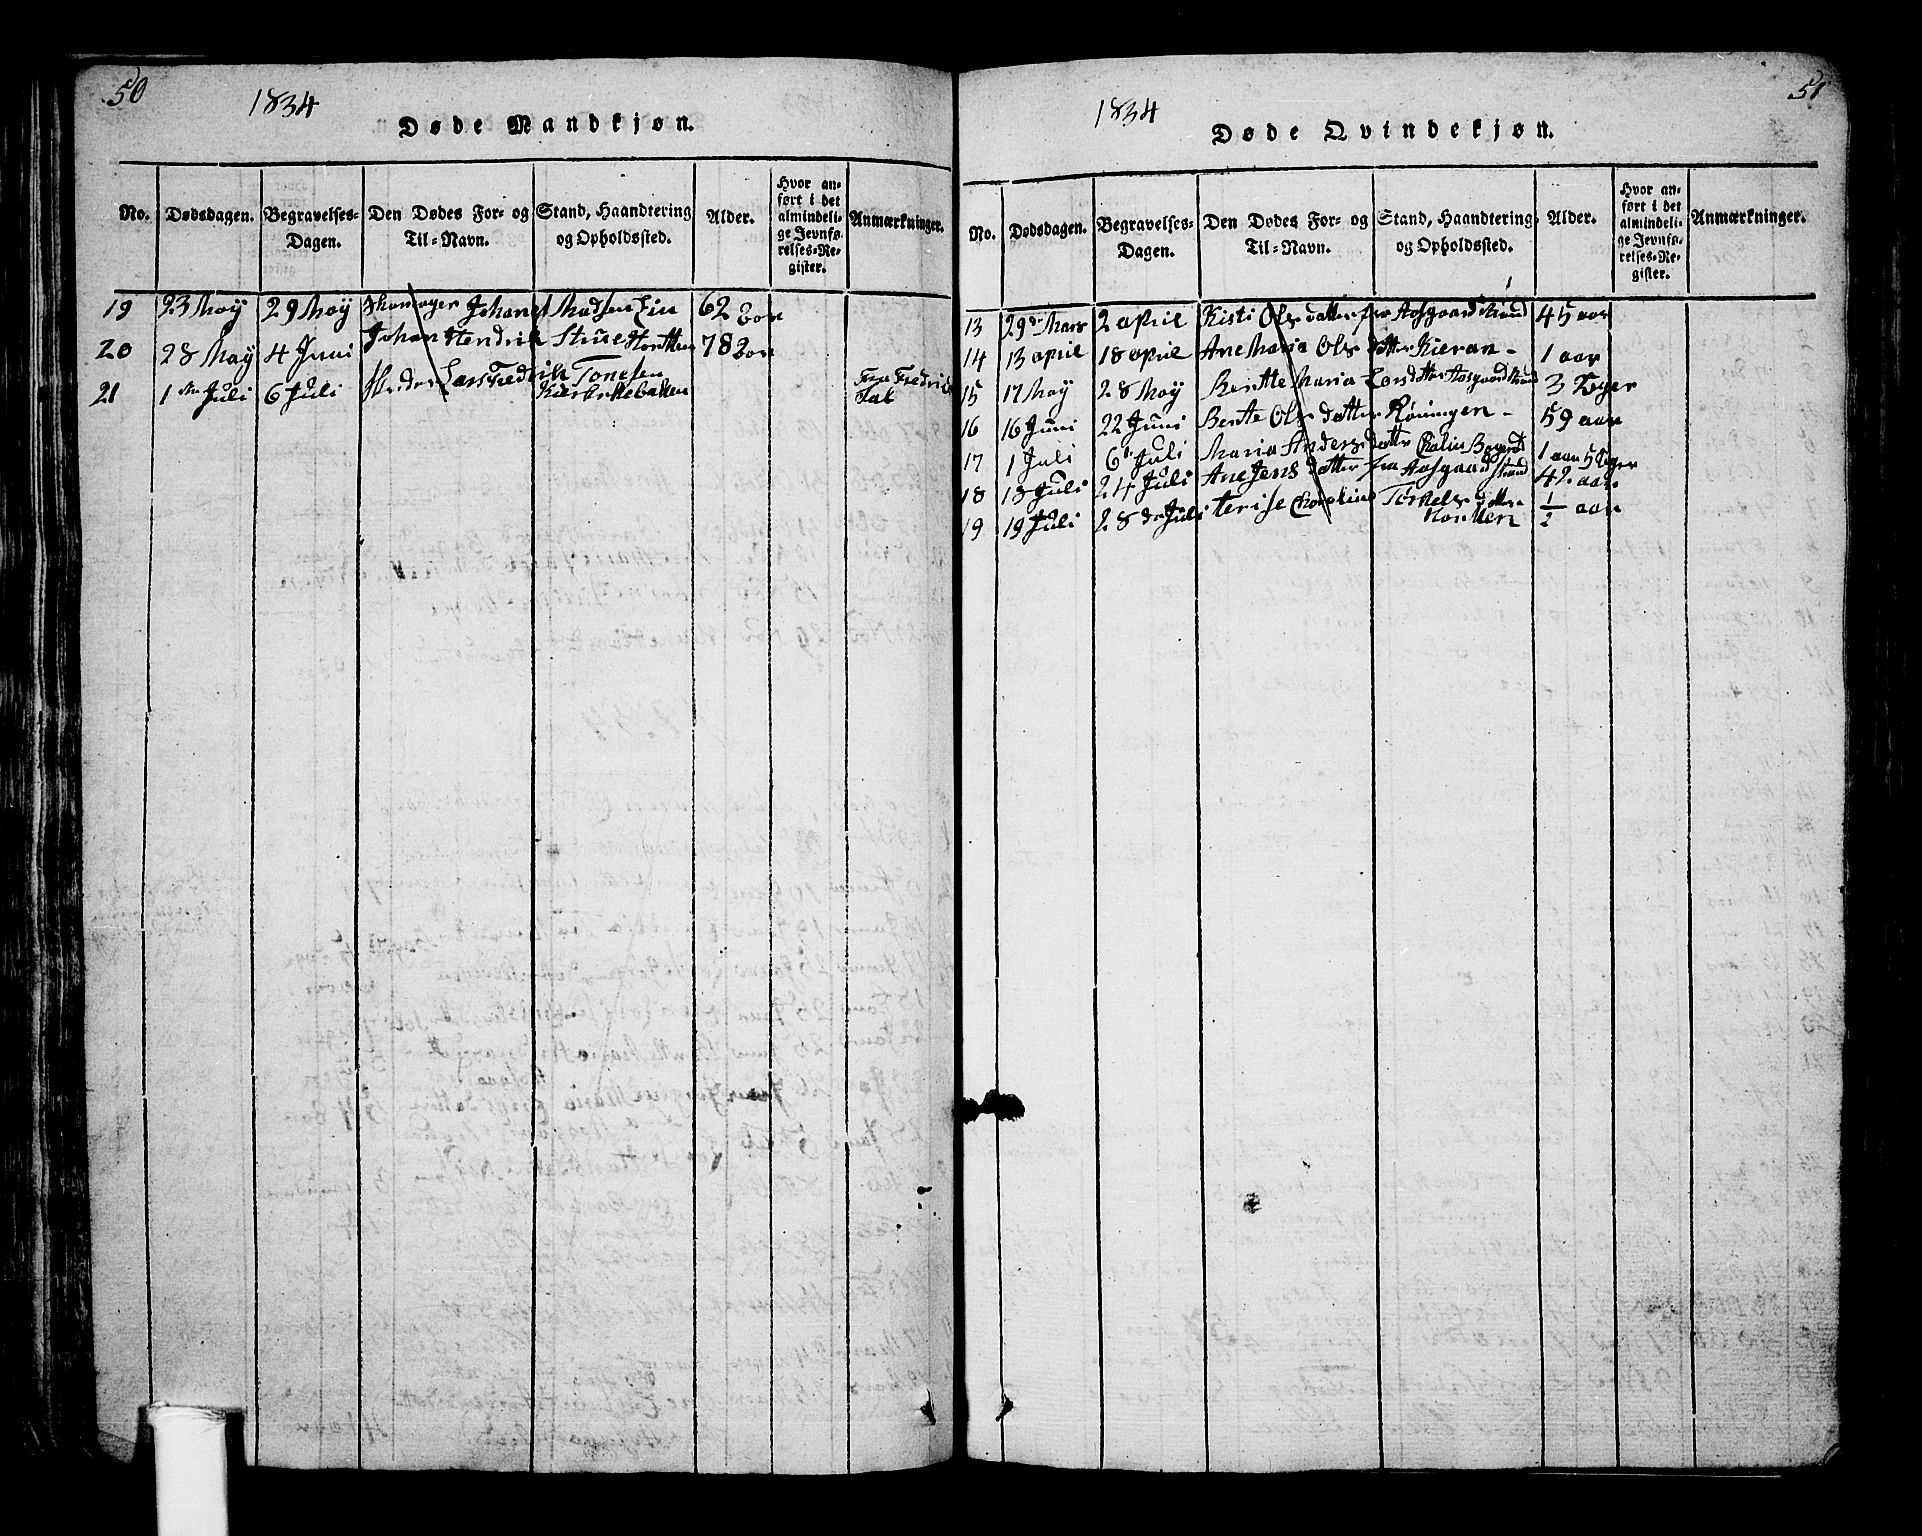 50
1834
Døde Mandkjøn.
No.
Dødsdagen.
Begravelses-
Dagen.
Den Dødes For- og
Til-Navn.
Stand, Haandtering
og Opholdssted.
Alder.
Hvor an-
ført i det
almindeli-
ge Jevnfø-
relses-Re-
gister.
Anmærkninger.
19 23 May 29 May Johan Madsen 62 aar
20 28 May 4 Juni Johan Hendrik Hortten 78 aar
21 1 Juli 6 Juli Lars Fredrik Tonesen
51
1834
Døde Qvindekjøn.
No.
Dødsdagen.
Begravelses-
Dagen.
Den Dødes For- og
Til-Navn.
Stand, Haandtering
og Opholdssted.
Alder.
Hvor an-
ført i det
almindeli-
ge Jevnfø-
relses-Re-
gister.
Anmærkninger.
13 29 Mars 2 april Kisti Ols datter fra Aasgaardstrand 45 aar
14 13 april 18 april Ane Maria Ols datter Kieran - 1 aar
15 17 May 28 May Bentte Maria Lars datter Aasgaardstrand 3 Uger
16 16 Juni 22 Juni Bente Ols datter Röningen - 59 aar
17 1 Juli 6 Juli Maria Anders datter 1 aar 5 Uger
18 13 Juli 24 Juli Ane Jens datter fra Aasgaardstrand 42 aar
19 19 Juli 28 Juli terise Torkels datter ½ aar
Hortten